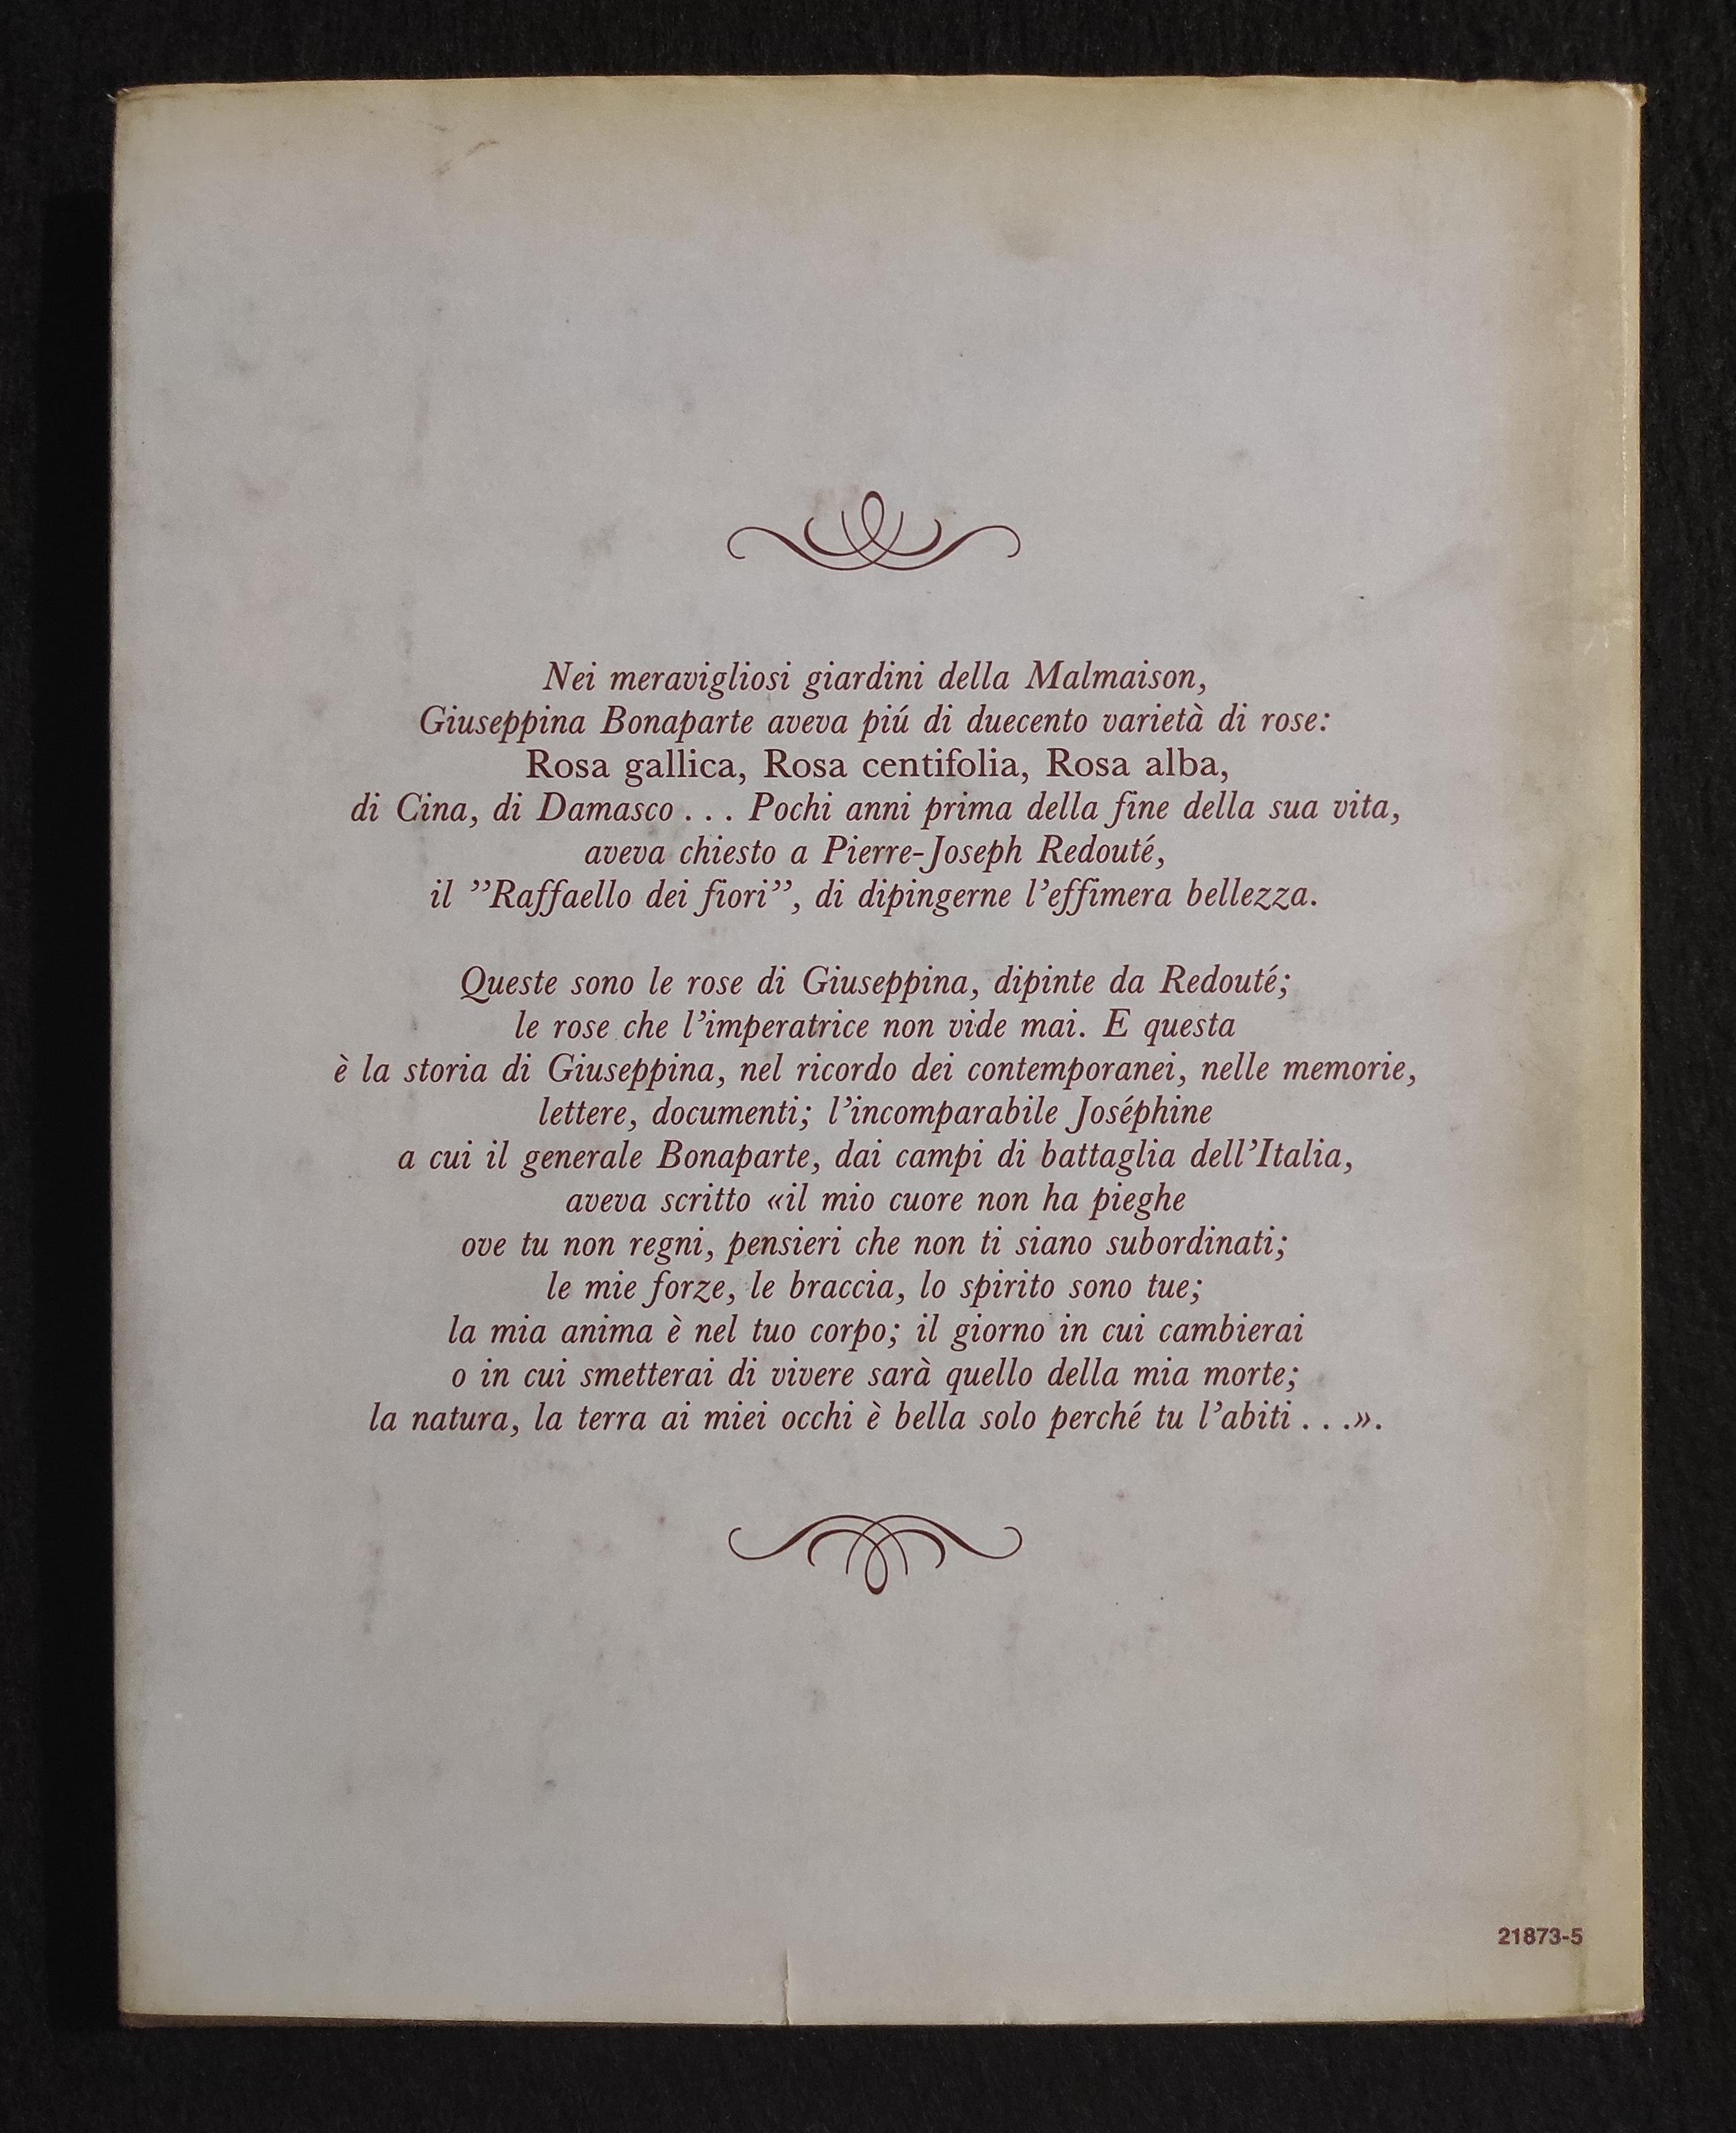 Nei meravigliosi giardini della Malmaison,
Giuseppina Bonaparte aveva piú di duecento varietà di rose:
Rosa gallica, Rosa centifolia, Rosa alba,
di Cina, di Damasco . . . Pochi anni prima della fine della sua vita,
aveva chiesto a Pierre-Joseph Redouté,
il ”Raffaello dei fiori”, di dipingerne l’effimera bellezza.
Queste sono le rose di Giuseppina, dipinte da Redouté;
le rose che l’imperatrice non vide mai. E questa
è la storia di Giuseppina, nel ricordo dei contemporanei, nelle memorie,
lettere, documenti; l’incomparabile Joséphine
a cui il generale Bonaparte, dai campi di battaglia dell’Italia,
aveva scritto «il mio cuore non ha pieghe
ove tu non regni, pensieri che non ti siano subordinati;
le mie forze, le braccia, lo spirito sono tue;
la mia anima è nel tuo corpo; il giorno in cui cambierai
o in cui smetterai di vivere sarà quello della mia morte;
la natura, la terra ai miei occhi è bella solo perché tu l’abiti . . .».
21873-5